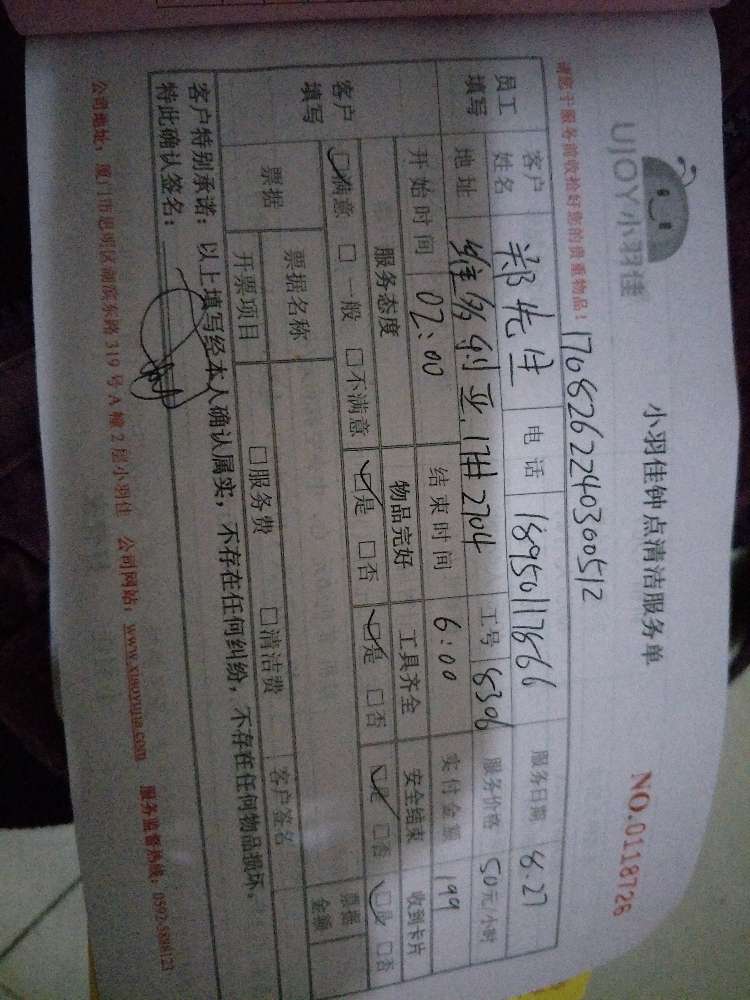 UJOY小羽佳
小羽佳钟点清洁服务单
NO.0118726
请您于服务前收拾好您的贵重物品！
1708262240300512
员工填写 客户姓名 郑先生 电话 18950117866 服务日期 8.27
地址 维多利亚1#2704 工号 8306 服务价格 50元/小时
开始时间 02:00 结束时间 6:00 实付金额 199
客户填写 服务态度 物品完好 工具齐全 安全结束 收到卡片
☑满意 □一般 □不满意 ☑是 □否 ☑是 □否 ☑是 □否 ☑是 □否
票据 票据名称 客户签名 票据金额
开票项目 □服务费 □清洁费
客户特别承诺：以上填写经本人确认属实，不存在任何纠纷，不存在任何物品损坏，
特此确认签名：
公司地址：厦门市思明区湖滨东路319号A幢2层小羽佳 公司网站：www.xiaoyujia.com 服务监督热线：0592-5888123